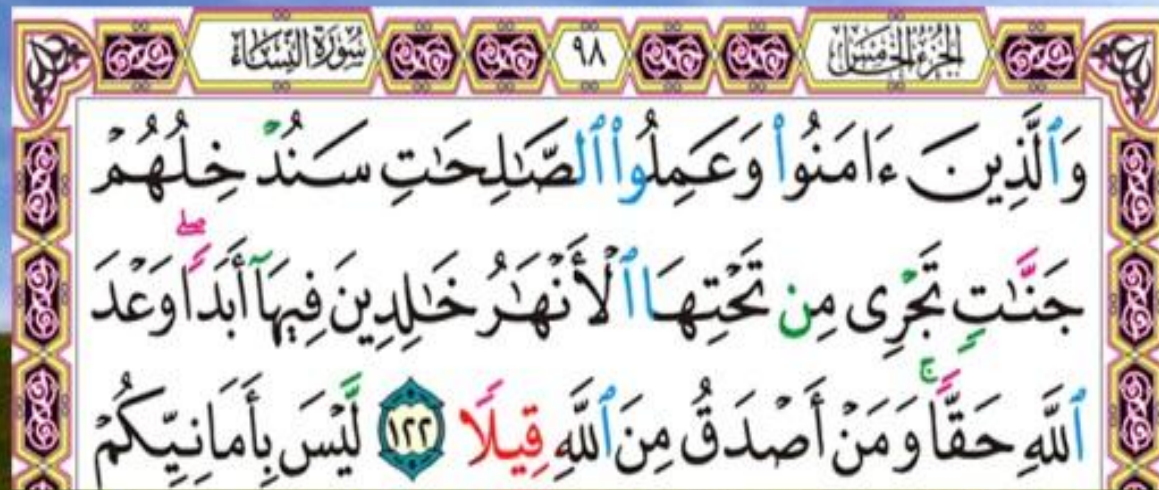 الجزء الخامس ٩٨ سورة النساء
وَٱلَّذِينَ ءَامَنُوا۟ وَعَمِلُوا۟ ٱلصَّـٰلِحَـٰتِ سَنُدْخِلُهُمْ
جَنَّـٰتٍ تَجْرِى مِن تَحْتِهَا ٱلْأَنْهَـٰرُ خَـٰلِدِينَ فِيهَآ أَبَدًا ۖ وَعْدَ
ٱللَّهِ حَقًّا ۚ وَمَنْ أَصْدَقُ مِنَ ٱللَّهِ قِيلًا ١٢٢ لَّيْسَ بِأَمَانِيِّكُمْ